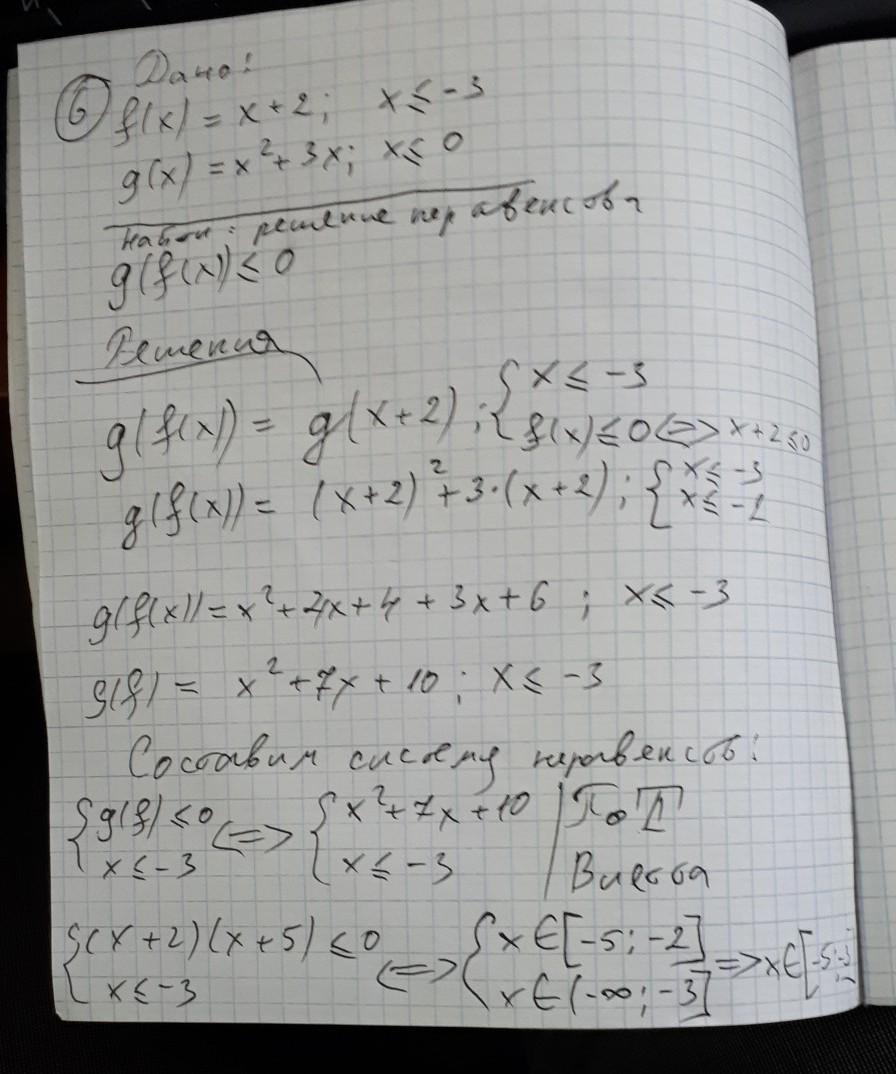 ⑥ Дано:
f(x) = x + 2; x ≤ -3
g(x) = x² + 3x; x ≤ 0
Найти: решение неравенсова
g(f(x)) ≤ 0
Решения
g(f(x)) = g(x+2); { x ≤ -3
f(x) ≤ 0 <=> x+2 ≤ 0
g(f(x)) = (x+2)² + 3·(x+2); { x ≤ -3
x ≤ -2
g(f(x)) = x² + 4x + 4 + 3x + 6 ; x ≤ -3
g(f) = x² + 7x + 10; x ≤ -3
Составим систему неравенсв:
{ g(f) ≤ 0 <=> { x² + 7x + 10 | По Т
x ≤ -3 x ≤ -3 | Виета
{ (x+2)(x+5) ≤ 0 <=> { x ∈ [-5; -2] => x ∈ [-5; -3
x ≤ -3 x ∈ (-∞; -3]